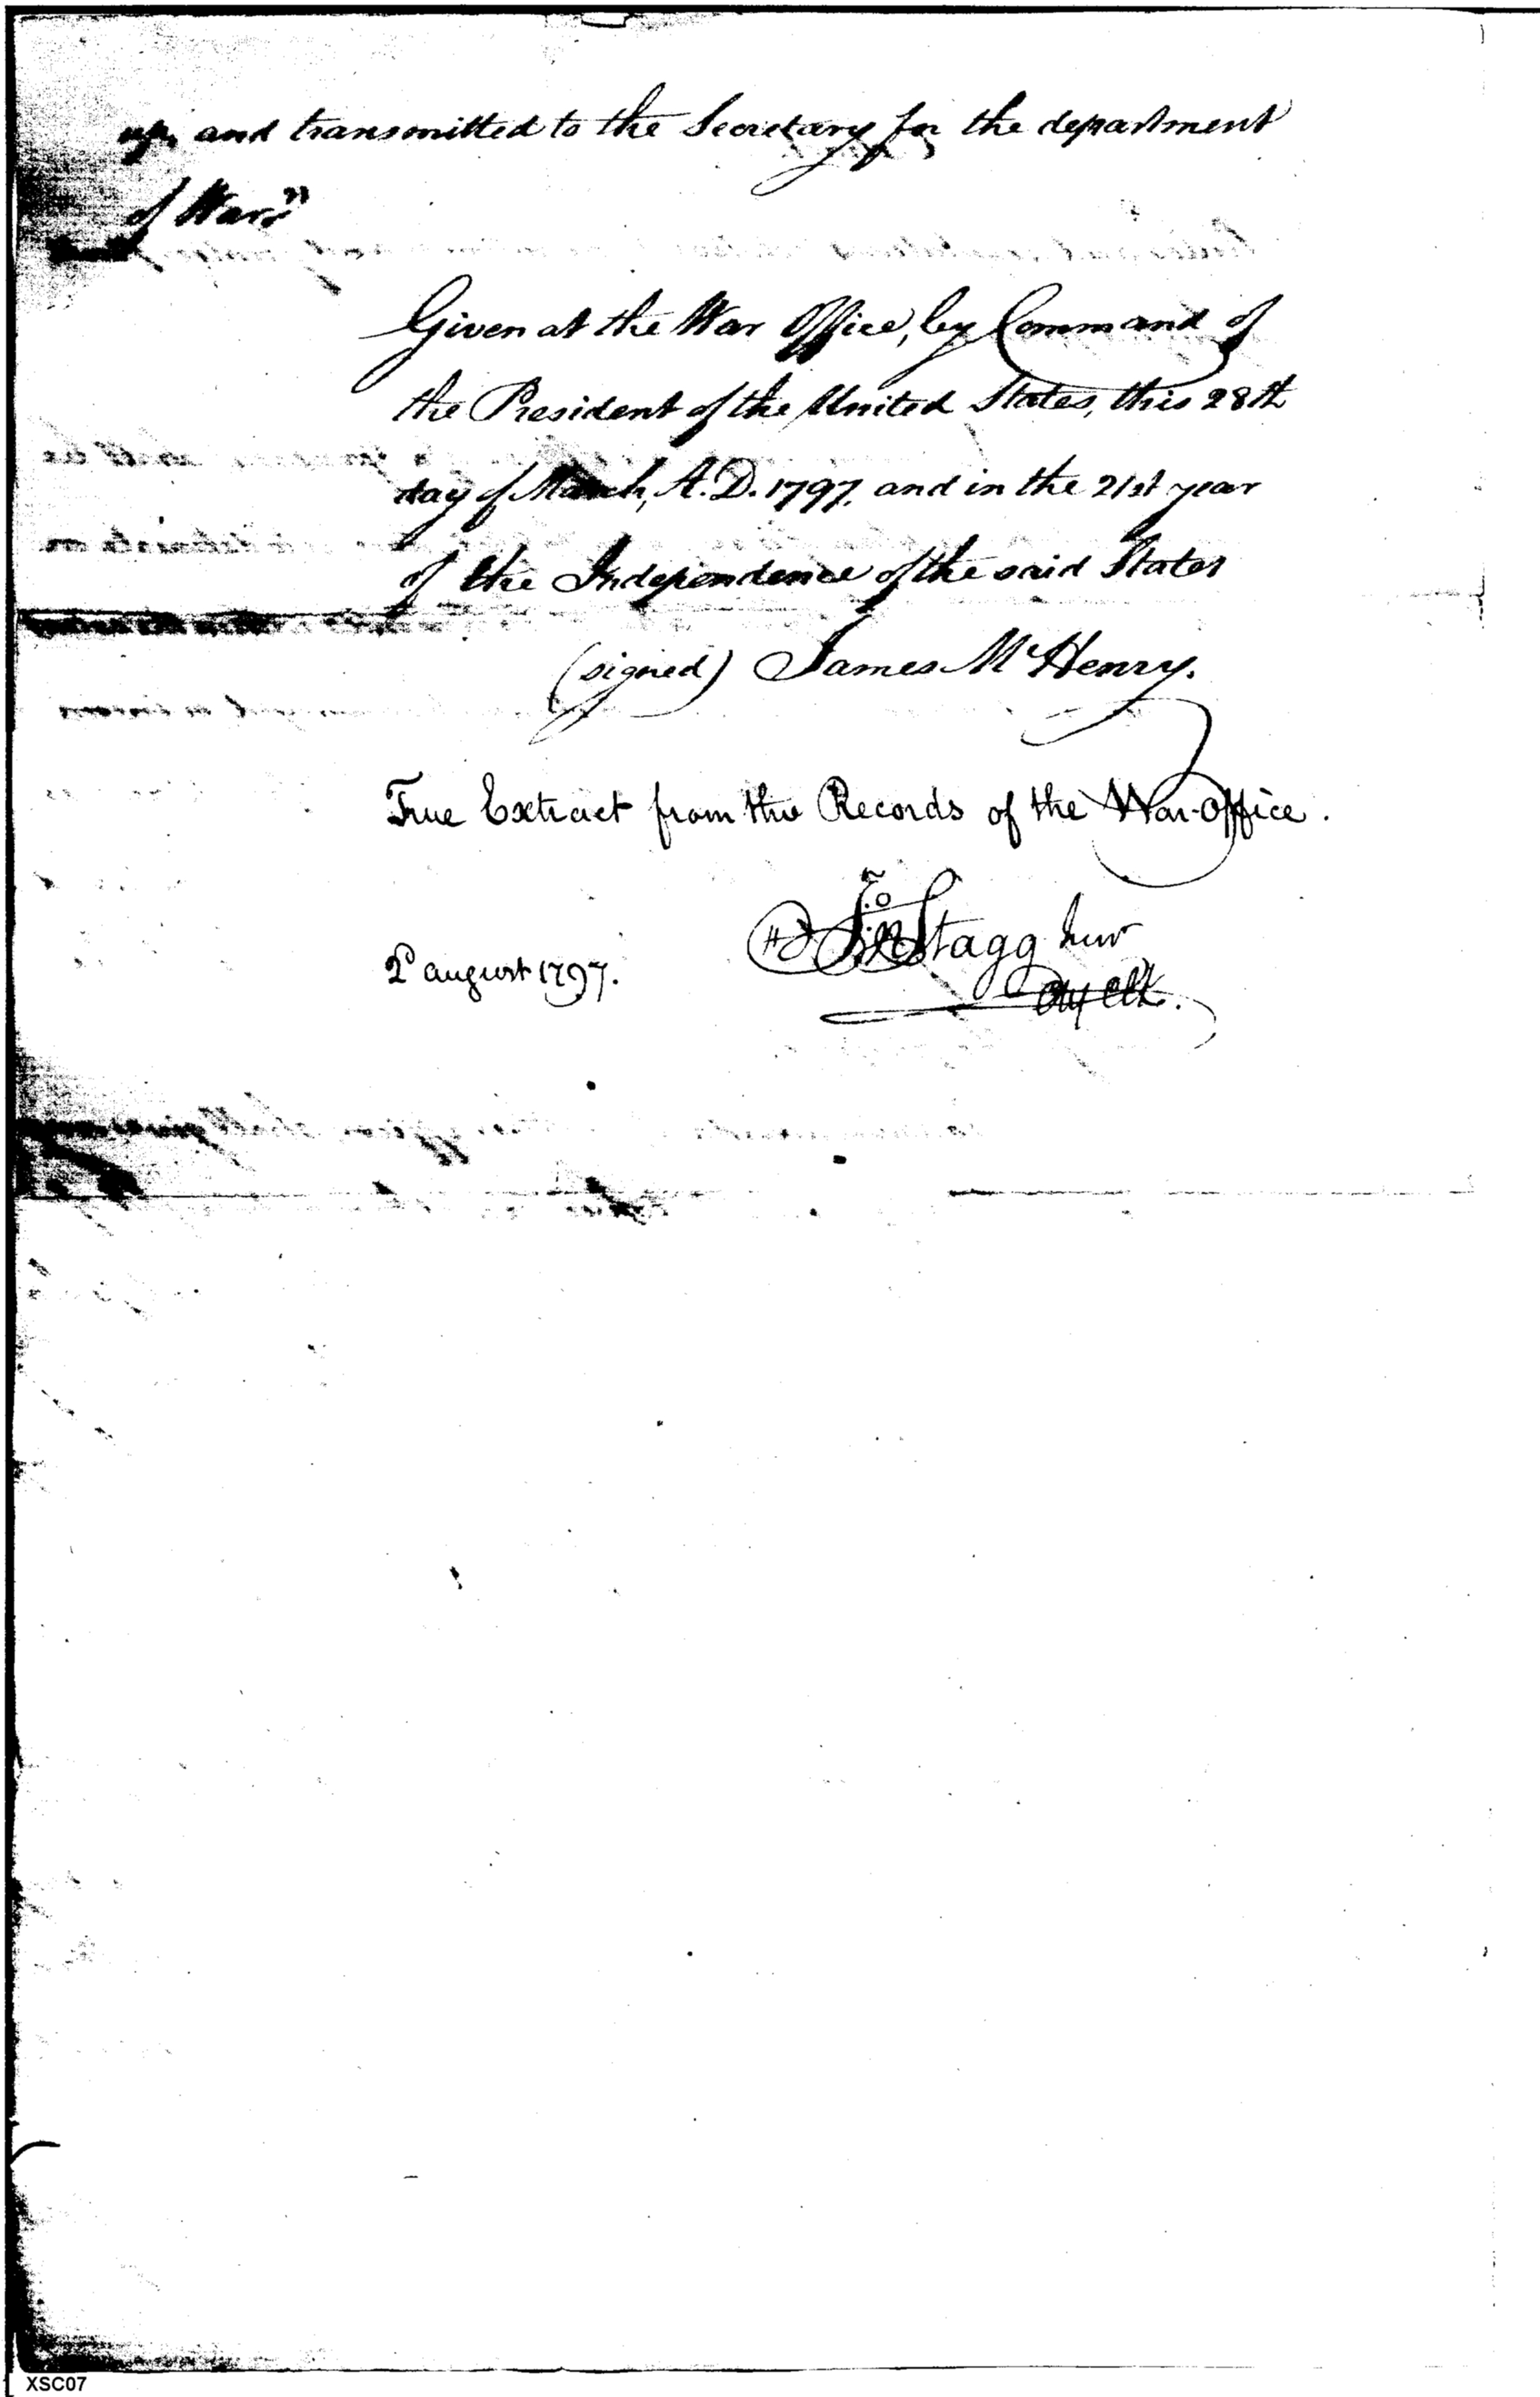 up, and transmitted to the Secretary for the department
of War."
Given at the War Office, by Command of
the President of the United States, this 28th
day of March, A.D. 1797, and in the 21st year
of the Independence of the said States
(signed) James McHenry.
True Extract from the Records of the War-Office.
Jno Stagg Junr
2d august 1797.
Clk.
XSC07